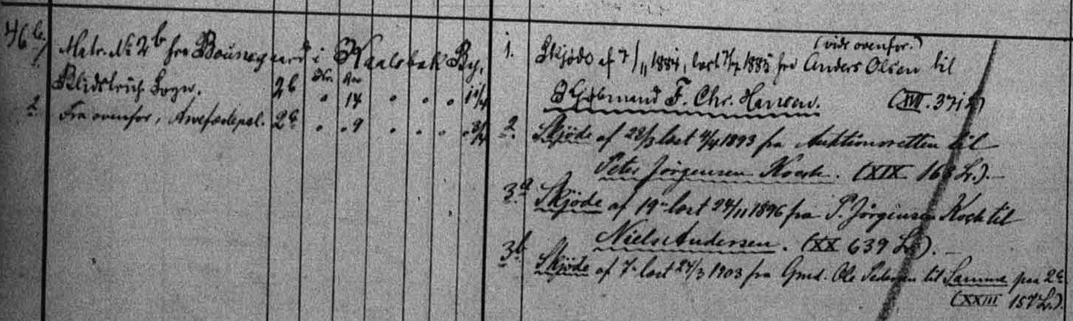 46b.
Matr. № 2b fra Baunegaard i Kaalsbæk By,
Sogn. 2b " 14 " " "
2. Fra ovenfor, 2c " " 9 " " " " 3/4
1. Skjøde af 7/11 1884, læst 7/7 1885 fra Anders Olsen til
(vide ovenfor.)
F. Chr. Hansen. (XVI. 371
2. Skjøde af 28/3 læst 4/4 1893 fra Auktionsretten til
Peter Jörgensen Koch. (XIX 16
3a Skjøde af 19- læst 24/11 1896 fra P. Jörgensen Koch til
Niels Andersen. (XX 639 L
3b. Skjøde af 7- læst 24/3 1903 fra Gmd. Ole Pedersen til Samme paa 2c.
(XXIII 157 L.).